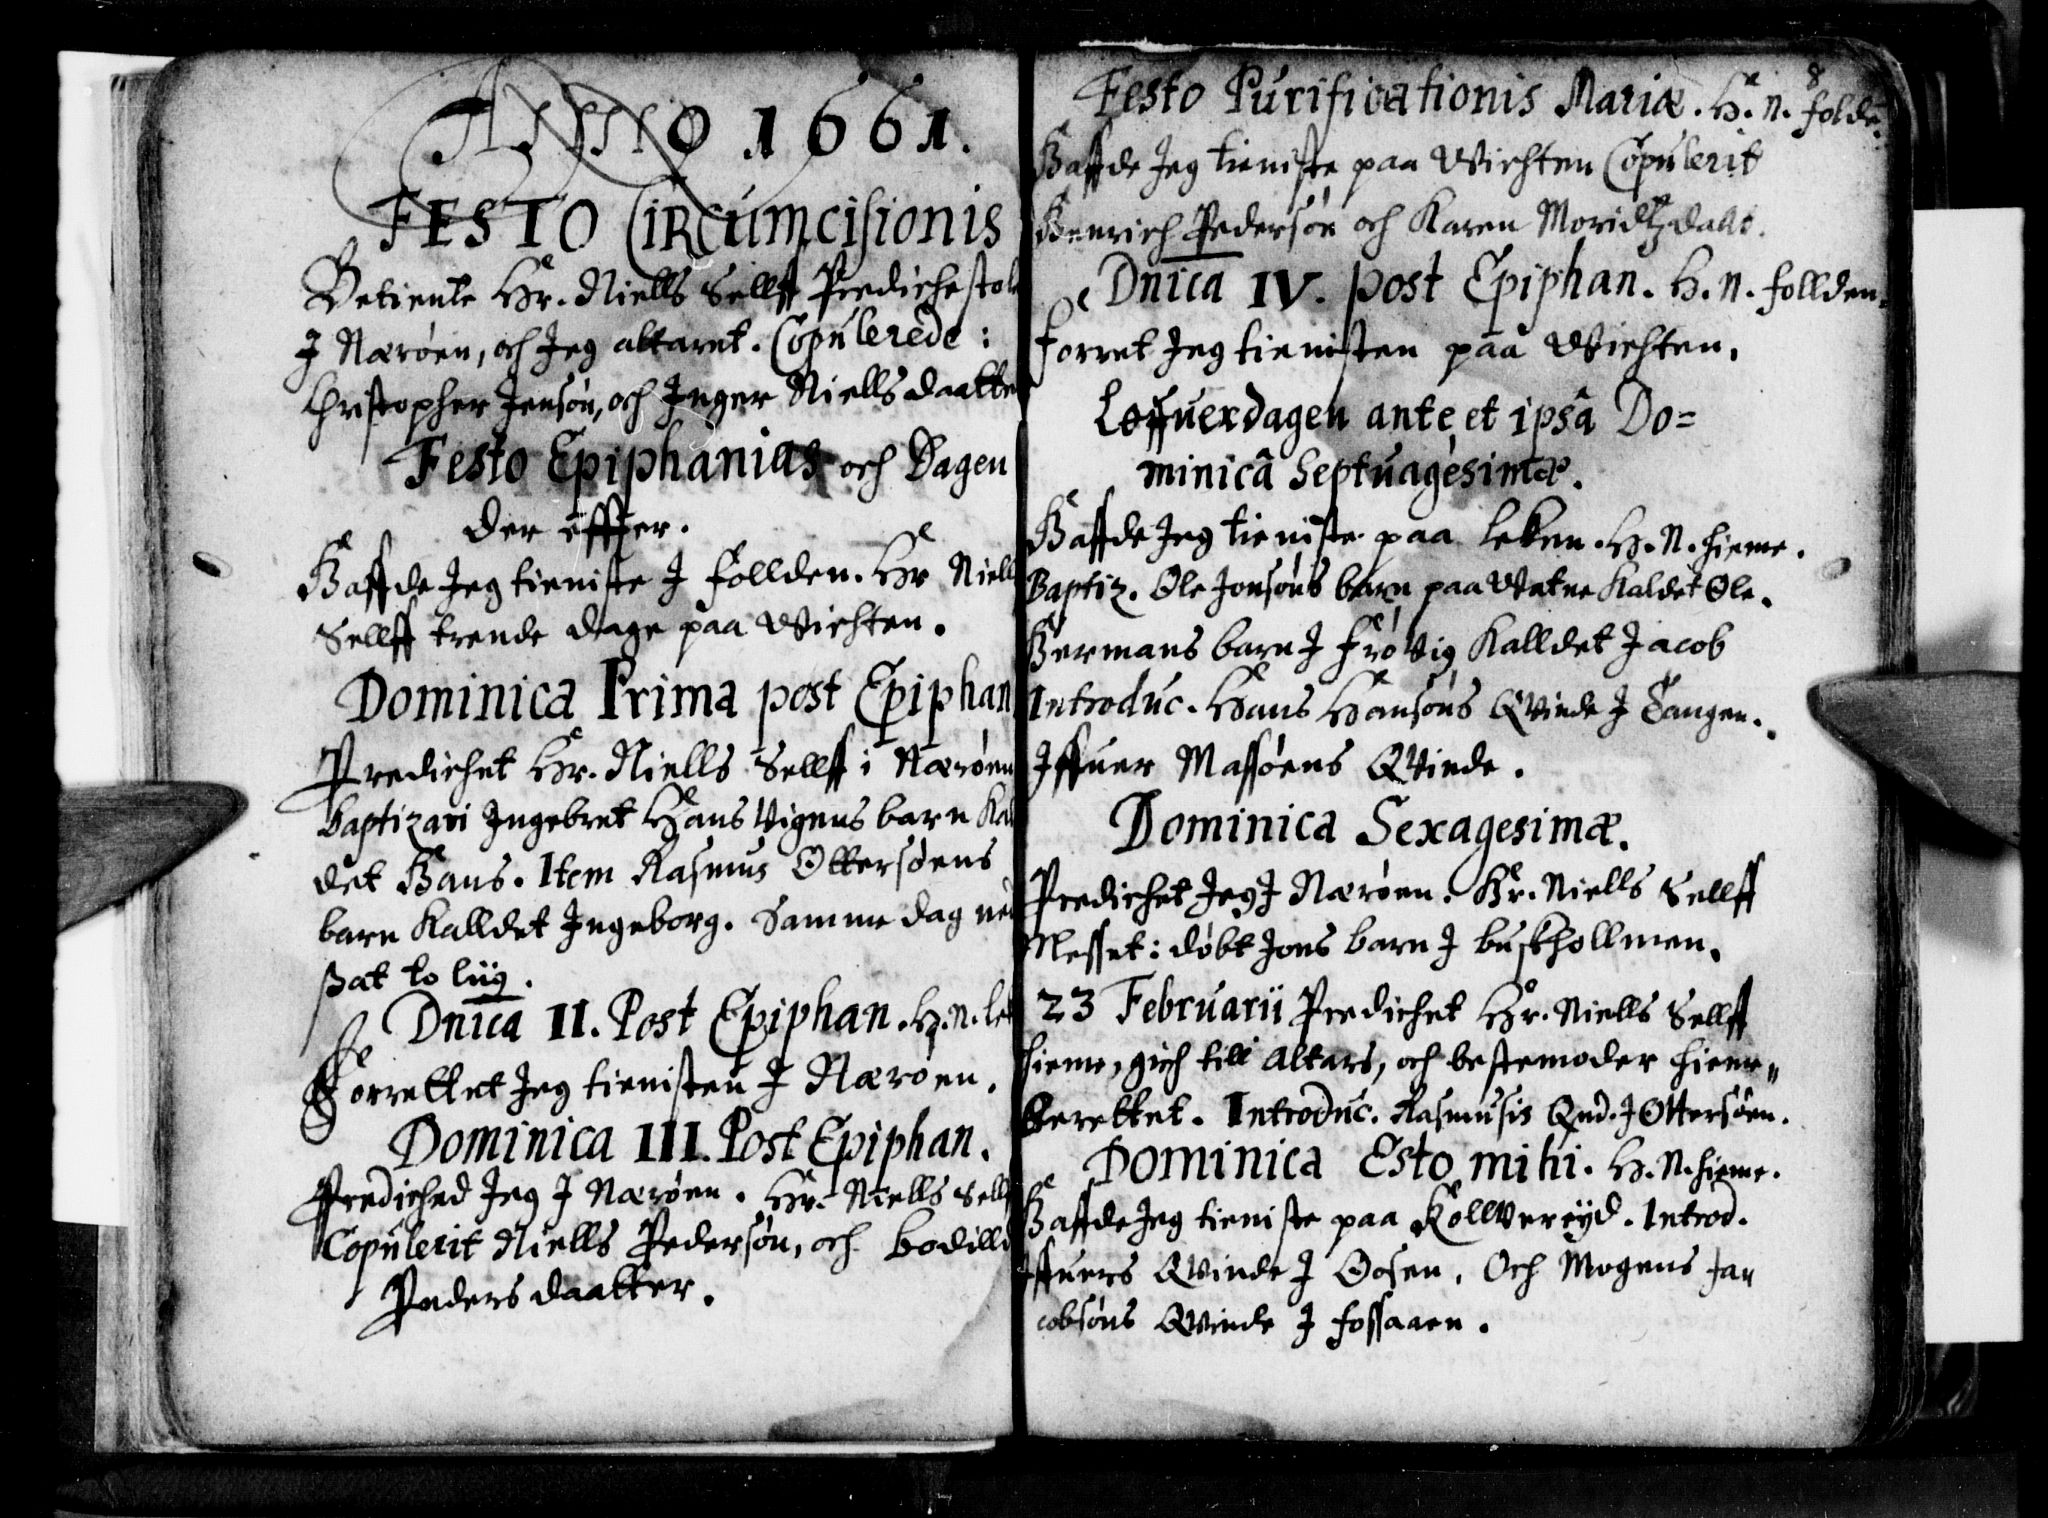 Anno 1661.
FESTO CIRCUMcisionis
Betiente Hr. Niells Sellff Predichestol
J Nærøen, och Jeg altaret. Copulerede:
Christopher Jensøn, och Inger Niells daatte
Festo Epiphanias och Dagen
der effter.
Haffde Jeg tieniste J Follden. Hr Niell
Sellff trende dage paa Wichten.
Dominica Prima post Epiphan
Predichet Hr. Niells Sellff i Nærøen
Baptizavi Ingebret Hans Vigens barn Kal
det Hans. Item Rasmus Ottersøens
barn Kalldet Ingeborg. Samme dag ned
sat to liig.
Dnica II. Post Epiphan. H. N. let
Forrettet Jeg tienisten J Nærøen.
Dominica III. Post Epiphan.
Prediched Jeg J Nærøen. Hr. Niells Sellf
Copulerit Niells Pedersøn, och Bodilld
Peders daatter.
8
Festo Purificationis Mariæ. H. N. folde.
Haffde Jeg tieniste paa Wichten Copulerit
Henrich Pedersøn och Karen Moridtzdatt.
Dnica IV. post Epiphan. H. N. follden.
Forret Jeg tienisten paa Wichten.
Løffuerdagen ante et ipsâ Do=
minicâ Septuagesimæ.
Haffde Jeg tieniste paa Leken. H. N. hieme.
Baptiz. Ole Jonsøns barn paa Vatne Kaldet Ole.
Hermans barn J Frøvig Kalldet Jacob
Introduc. Hans Hansøns Qvinde J Tangen.
Iffuer Massøens Qvinde.
Dominica Sexagesimæ.
Predichet Jeg J Nærøen. Hr. Niells Sellff
Messet: døbt Jons barn J buskhollmen.
23 Februarii Predichet Hr. Niells Sellff
hieme, gich till Altars, och bestemoder hieme
Berettet. Introduc. Rasmusis Qnd. J Ottersøen.
Dominica Esto mihi. H. N. hieme.
Haffde Jeg tieniste paa Kollvereyd. Introd.
Iffuers Qvinde J Oosen, Och Mogens Ja=
cobsøns Qvinde J Fossaaen.